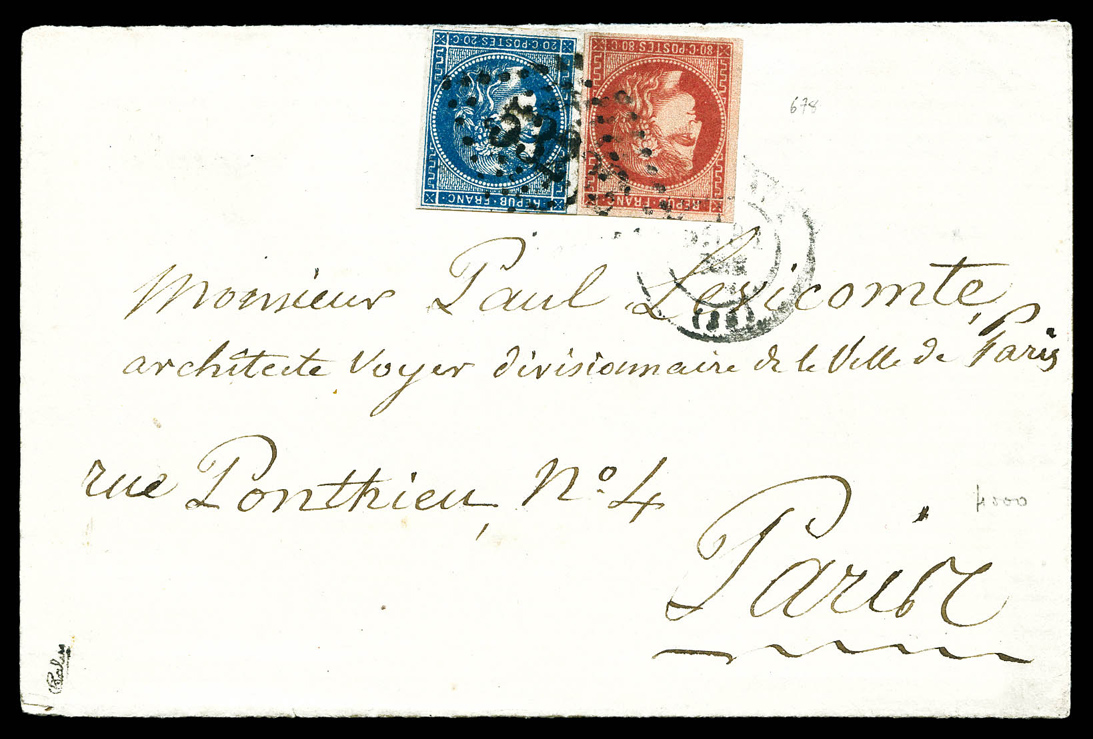 20·C·POSTES·20·C· 80·C·POSTES·80·C·
REPUB·FRANC· REPUB·FRANC·
678
Monsieur Paul Levicomte,
architecte Voyer divisionnaire de la Ville de Paris
rue Ponthieu, Nº 4
4000
Paris